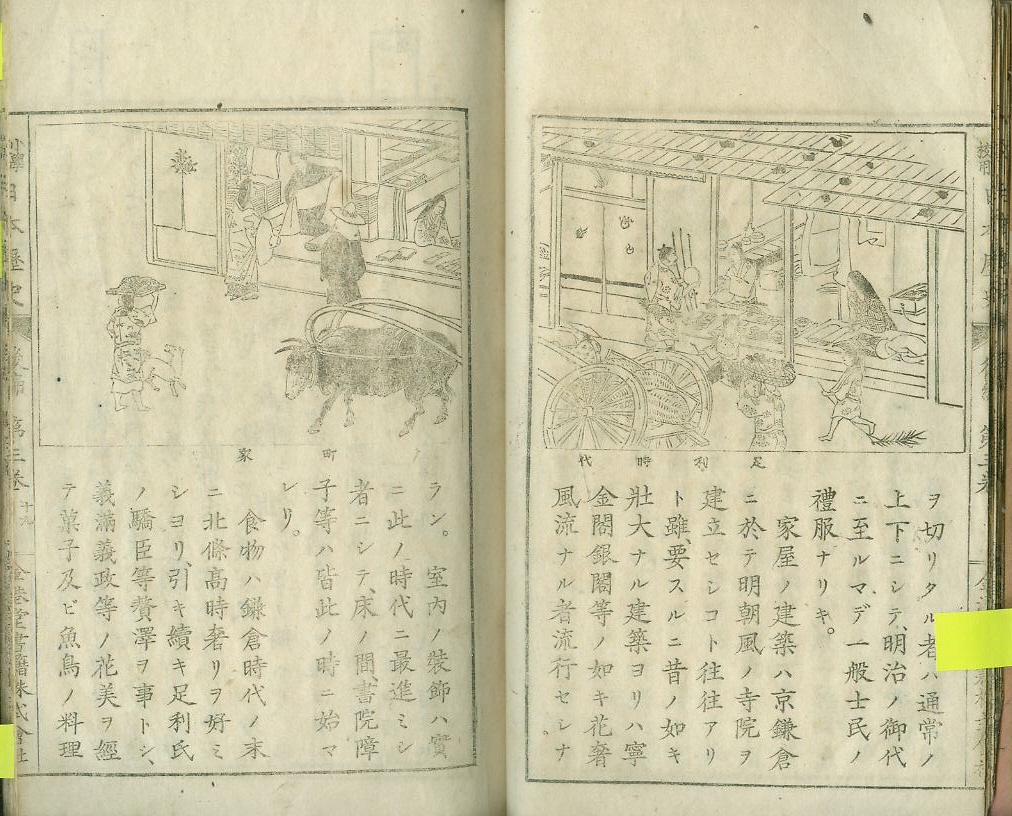 ヲ切リタル者ハ通常ノ
上下ニシテ、明治ノ御代
ニ至ルマデ一般士民ノ
禮服ナリキ。
家屋ノ建築ハ京鎌倉
ニ於テ明朝風ノ寺院ヲ
建立セシコト往往アリ
ト雖、要スルニ昔ノ如キ
壯大ナル建築ヨリハ寧
金閣銀閣等ノ如キ花奢
風流ナル者流行セシナ
足利時代
ノ町家
ラン。室内ノ裝飾ハ實
ニ此ノ時代ニ最進ミシ
者ニシテ、床ノ間、書院、障
子等ハ皆此ノ時ニ始マ
レリ。
食物ハ鎌倉時代ノ末
ニ北條高時奢リヲ好ミ
シヨリ、引キ續キ足利氏
ノ驕臣等贅澤ヲ事トシ、
義滿義政等ノ花美ヲ經
テ菓子及ビ魚鳥ノ料理
日本歷史 後編 第三卷 十九 金港堂書籍株式會社